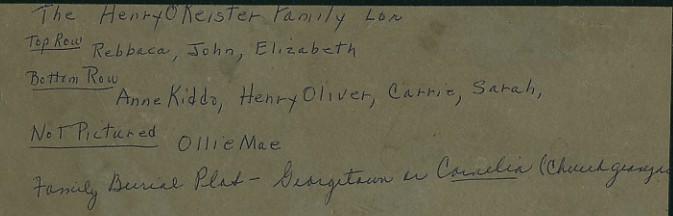 The Henry O Keister Family Lon
Top Row Rebbaca, John, Elizabeth
Bottom Row
Anne Kiddo, Henry Oliver, Carrie, Sarah,
Not Pictured Ollie Mae
Family Burial Plot - Georgetown or Cornelia (Church